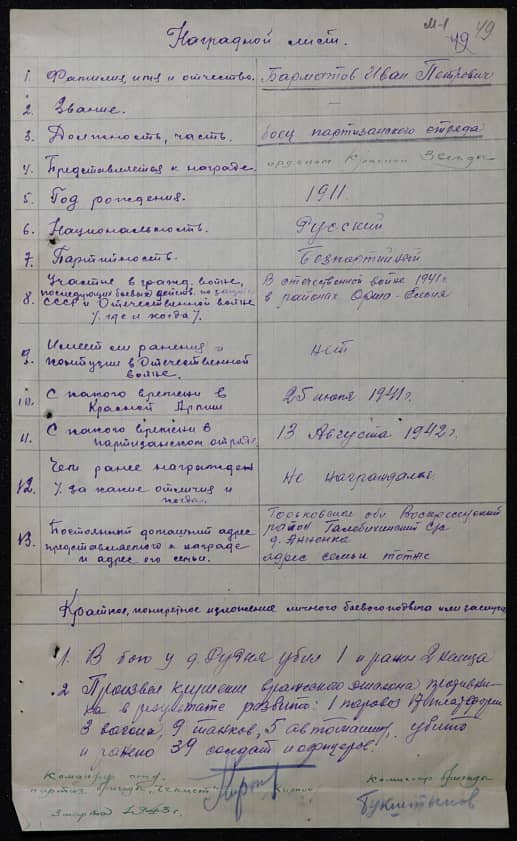 М-1
49 49
Наградной лист.
1. Фамилия, имя и отчество. Барматов Иван Петрович
2. Звание. —
3. Должность, часть. боец партизанского отряда
4. Представляется к награде. орденом Красной Звезды
5. Год рождения. 1911.
6. Национальность. Русский
7. Партийность. Безпартийный
8. Участие в гражд. войне, последующих боевых действ. по защите СССР и Отечественной войне /. где и когда /.
В отечественной войне 1941г.
в районах Орша-Ельня
9. Имеет ли ранения и контузии в Отечественной войне. нет
10. С какого времени в Красной Армии 25 июня 1941г.
11. С какого времени в партизанском отряде. 13 Августа 1942г.
12. Чем ранее награжден /. за какие отличия и когда. Не награждался.
13. Постоянный домашний адрес представляемого к награде и адрес его семьи.
Горьковская обл Воскресенский
район Галовихинский С/с
д. Анненка
адрес семьи тотже
Краткое, конкретное изложение личного боевого подвига или заслуг.
1. В бою у д. Рудня убил 1 и ранил 2 немца
2 Произвел крушение вражеского эшелона противни-
ка в результате разбито: 1 паровоз 17 платформ
3 вагона, 9 танков, 5 автомашин, убито
и ранено 39 солдат и офицеров.
Командир
партиз. бригады "Чекист" Кирпич
Комиссар бригады
3 марта 1943г.